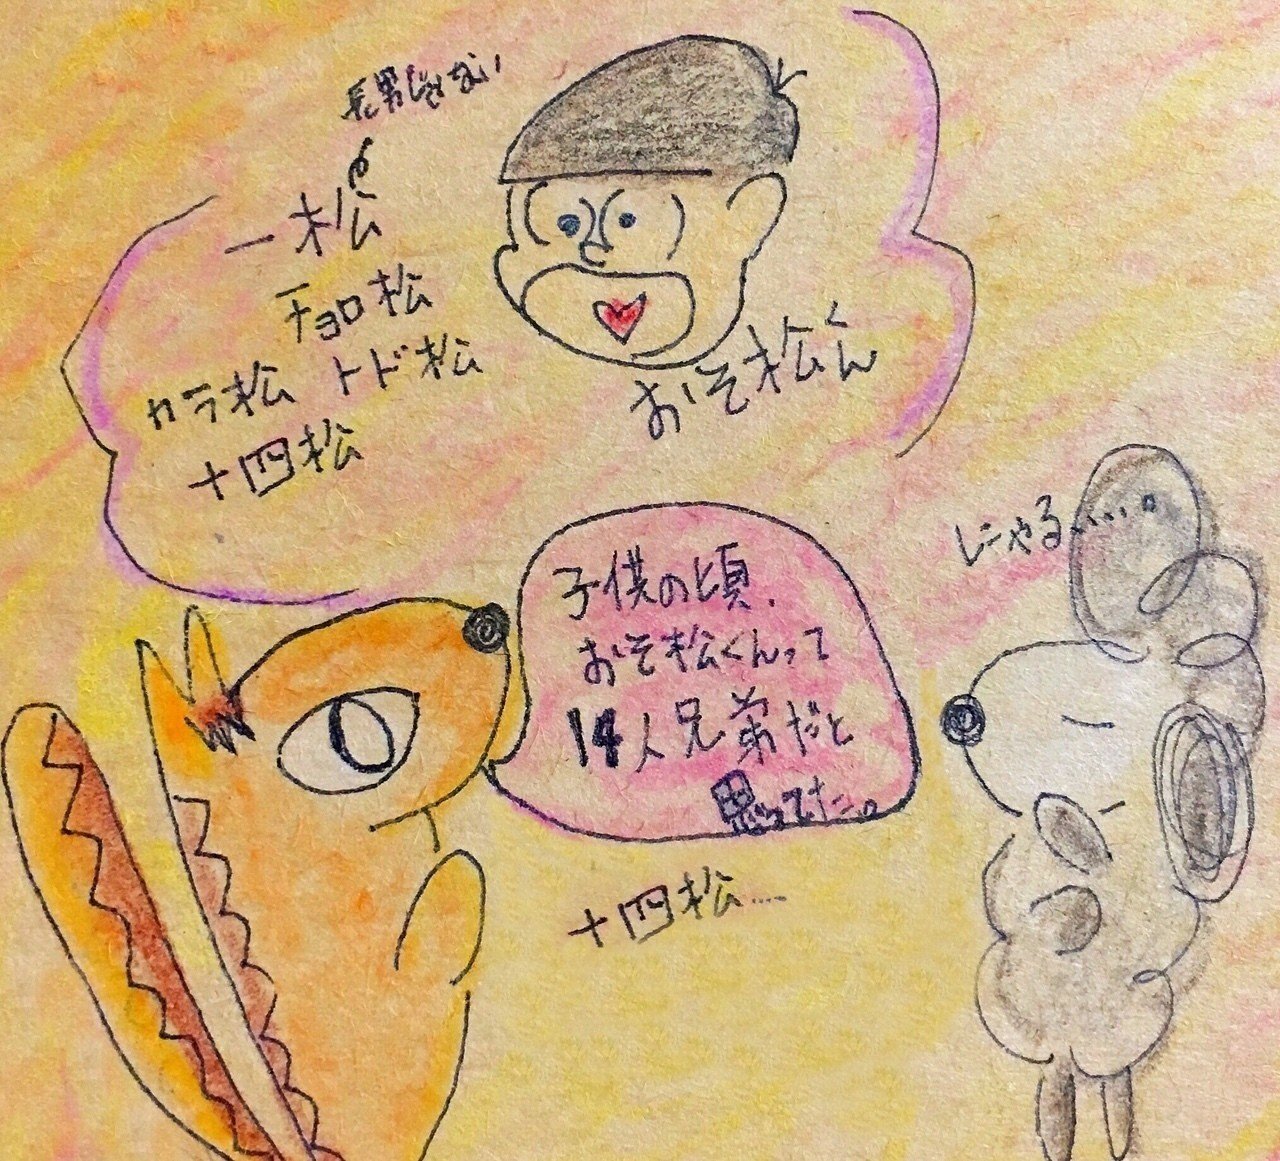 長男じゃない
一松
チョロ松
カラ松 トド松
十四松
おそ松くん
子供の頃、
おそ松くんって
14人兄弟だと
思ってた。
にゃるい....。
十四松....